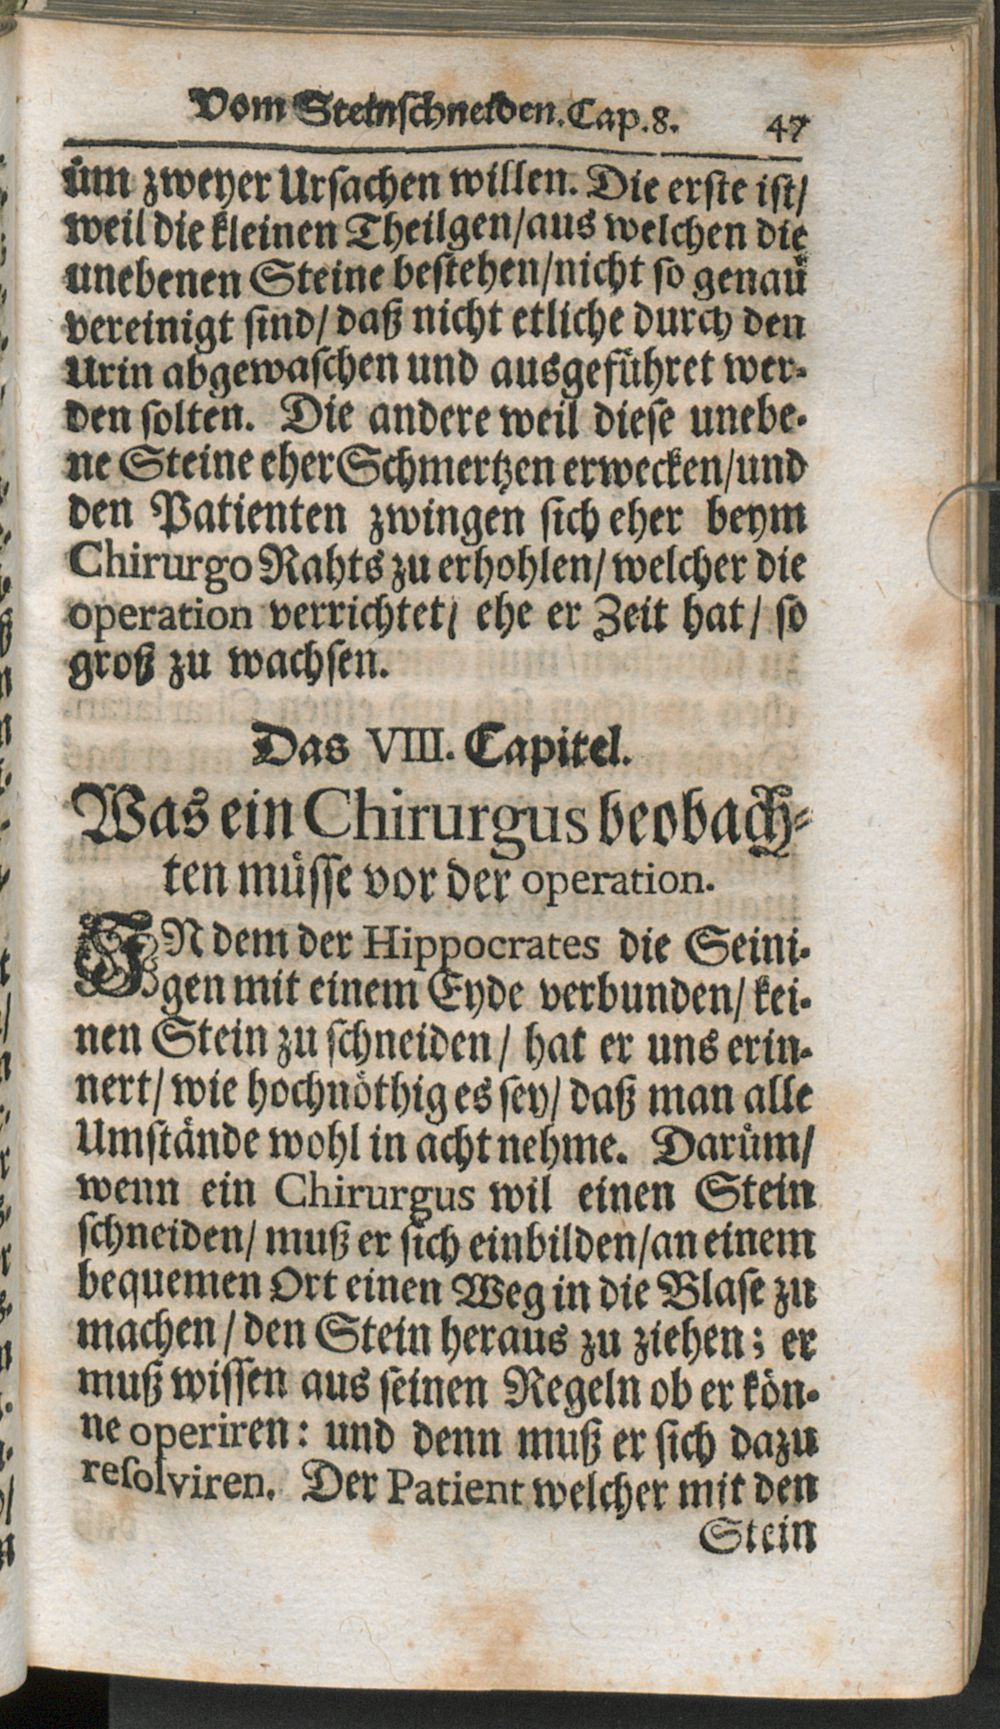 Vom Steinschneiden. Cap. 8. 47
üm zweyer Ursachen willen. Die erste ist/
weil die kleinen Theilgen/aus welchen die
unebenen Steine bestehen/nicht so genaü
vereinigt sind/ daß nicht etliche durch den
Urin abgewaschen und ausgeführet wer-
den solten. Die andere weil diese unebe-
ne Steine eher Schmertzen erwecken/und
den Patienten zwingen sich eher beym
Chirurgo Rahts zu erhohlen/ welcher die
operation verrichtet/ ehe er Zeit hat/ so
groß zu wachsen.
Das VIII. Capitel.
Was ein Chirurgus beobach-
ten müsse vor der operation.
IN dem der Hippocrates die Seini-
gen mit einem Eyde verbunden/ kei-
nen Stein zu schneiden/ hat er uns erin-
nert/ wie hochnöthig es sey/ daß man alle
Umstände wohl in acht nehme. Darüm/
wenn ein Chirurgus wil einen Stein
schneiden/ muß er sich einbilden/an einem
bequemen Ort einen Weg in die Blase zu
machen/ den Stein heraus zu ziehen; er
muß wissen aus seinen Regeln ob er kön-
ne operiren: und denn muß er sich dazu
resolviren. Der Patient welcher mit den
Stein